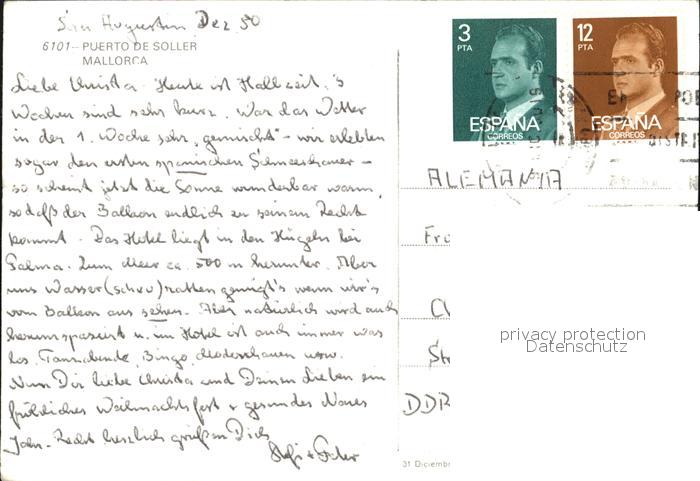 San Augustin Dez 80
6101 - PUERTO DE SOLLER
MALLORCA
Liebe Christa - Heute ist Halbzeit, 3
Wochen sind sehr kurz. War das Wetter
in der 1. Woche sehr "gemischt" - wir erlebten
sogar den ersten spanischen Schneeschauer -
so scheint jetzt die Sonne wunderbar warm,
sodaß der Balkon endlich zu seinem Recht
kommt. Das Hotel liegt in den Hügeln bei
Palma. Zum Meer ca. 500 m herunter. Aber
uns Wasser(scheu)ratten genügt's wenn wir's
vom Balkon aus sehen. Aber natürlich wird auch
herumspaziert u. im Hotel ist auch immer was
los. Tanzabende, Bingo, Modenschauen usw.
Nun Dir liebe Christa und Deinen Lieben ein
fröhliches Weihnachtsfest + gesundes Neues
Jahr. Recht herzlich grüßen Dich
3
PTA
ESPAÑA
CORREOS
12
PTA
ESPAÑA
CORREOS
ALEMANIA
Fra
St
DDR
privacy protection
Datenschutz
31 Diciembr